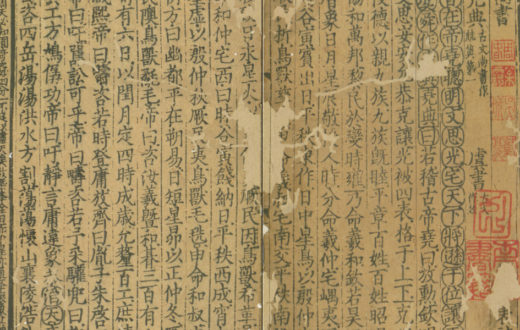 書
堯典 古文尚書作 虞書
昔在帝堯聰明文思光宅天下將遜于位讓
虞舜作堯典曰若稽古帝堯曰放勳欽
思安安允恭克讓光被四表格于上下克
德以親九族九族既睦平章百姓百姓昭
協和萬邦黎民於變時雍乃命羲和欽若昊
日月星辰敬授人時分命羲仲宅嵎夷
谷寅賓出日平秩東作日中星鳥以殷仲
析鳥獸 南交平秩南
永星火 厥民因鳥獸希革
和仲宅西曰昧谷寅餞納日平秩西成宵
星虛以殷仲秋厥民夷鳥獸毛毨申命和叔
方曰幽都平在朔易日短星昴以正仲冬
民隩鳥獸氄毛帝曰咨汝羲暨和朞三百有
有六日以閏月定四時成歲允釐百工庶
咸熙帝曰疇咨若時登庸放齊曰胤子朱啓
帝曰吁嚚訟可乎帝曰疇咨若予采驩兜曰
共工方鳩僝功帝曰吁靜言庸違象恭滔天
咨四岳湯湯洪水方割蕩蕩懷山襄陵浩